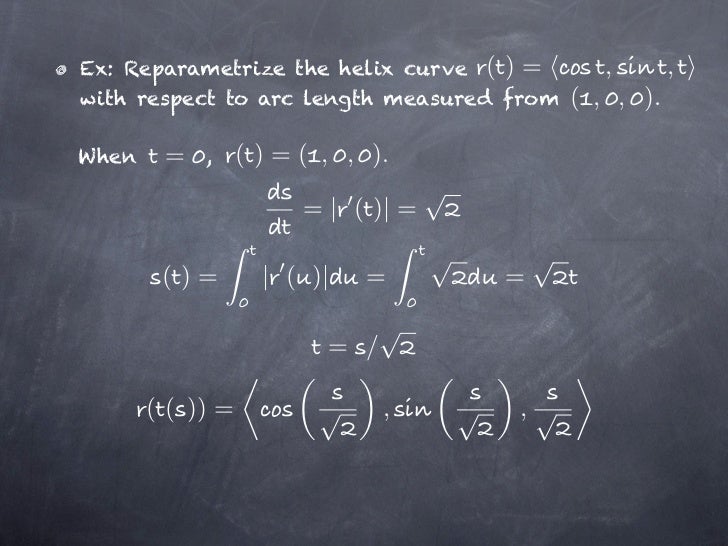 Ex: Reparametrize the helix curve r(t) = ⟨cos t, sin t, t⟩
with respect to arc length measured from (1, 0, 0).
When t = 0, r(t) = (1, 0, 0).
ds/dt = |r′(t)| = √2
s(t) = ∫₀ᵗ |r′(u)|du = ∫₀ᵗ √2du = √2t
t = s/√2
r(t(s)) = ⟨cos(s/√2), sin(s/√2), s/√2⟩